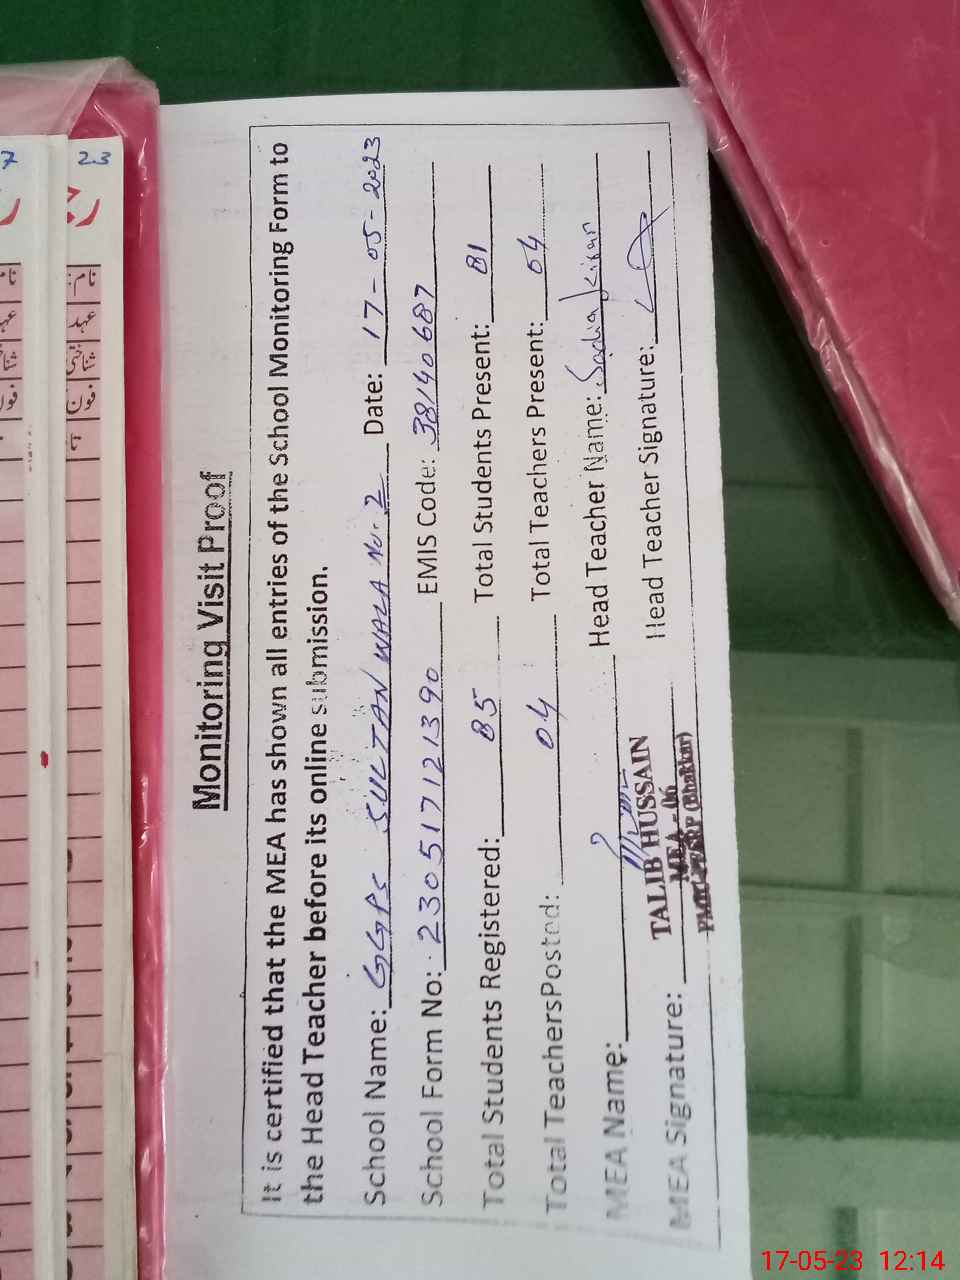 Monitoring Visit Proof
It is certified that the MEA has shown all entries of the School Monitoring Form to
the Head Teacher before its online submission.
School Name: GGPS SULTAN WALA No. 2 Date: 17-05-2023
School Form No: 230517121390 EMIS Code: 38140687
Total Students Registered: 85 Total Students Present: 81
Total Teachers Posted: 04 Total Teachers Present: 04
MEA Name: Head Teacher Name: Sadia
TALIB HUSSAIN
MEA - 06
(Bhakkar)
MEA Signature: Head Teacher Signature:
23
نام:
عہد
شناختی
فون
7
17-05-23 12:14